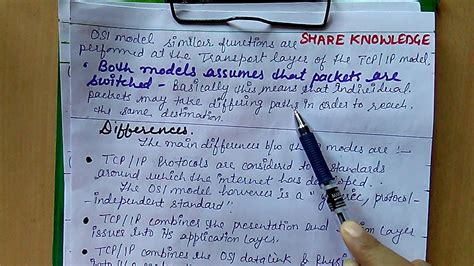 SHARE KNOWLEDGE
OSI model similar functions are
performed at the Transport layer of the TCP/IP model.
• Both models assumes that packets are
switched - Basically this means that individual
packets may take differing paths in order to reach
the same destination.
Differences.
The main differences b/w the modes are :-
• TCP/IP Protocols are considered to standards
around which the internet has developed.
The OSI model however is a " protocol-
-independent standard"
• TCP/IP combines the presentation and layer
issues into its application layer.
• TCP/IP combines the OSI data link &
into the